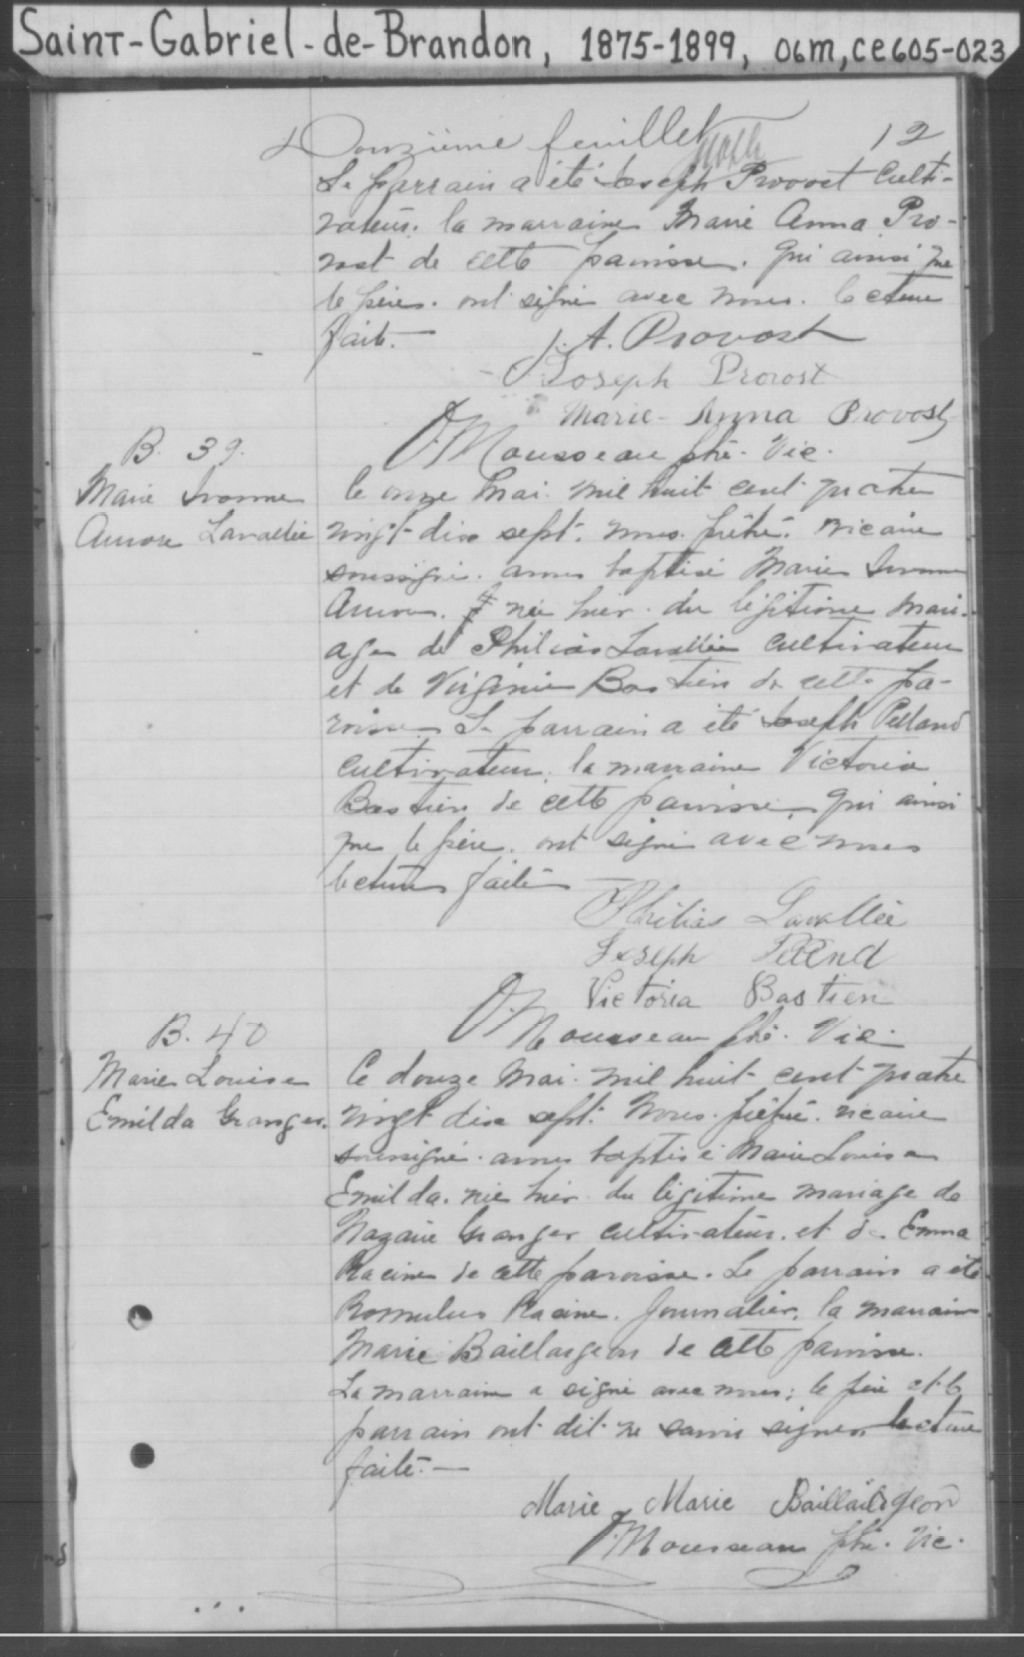 Saint-Gabriel-de-Brandon, 1875-1899, 06m, ce605-023
Douzième feuillet 12
Le parrain a été Joseph Provost Culti-
vateur. la marraine Marie Anna Pro-
vost de cette paroisse. qui ainsi que
le père. ont signé avec nous. lecture
faite.
J. A. Provost
Joseph Provost
Marie-Anna Provost
Mousseau ptre. Vic.
B. 39.
Marie Ivonne
Aurore Lavallée
le onze Mai. mil huit cent quatre
vingt-dix sept. nous. prêtre. vicaire
soussigné. avons baptisé Marie Ivonne
Aurore. née hier. du légitime mari-
age de Philias Lavallée cultivateur
et de Virginie Bastien de cette pa-
roisse. Le parrain a été Joseph Pelland
cultivateur. la marraine Victoria
Bastien de cette paroisse. qui ainsi
que le père. ont signé avec nous
lecture faite
Philias Lavallée
Joseph
Victoria Bastien
Mousseau ptre. Vic.
B. 40
Marie Louise
Emilda Granger.
Ce douze Mai. mil huit cent quatre
vingt dix sept. Nous. prêtre. vicaire
soussigné. avons baptisé Marie Louise
Emilda. née hier. du légitime mariage de
Nazaire Granger cultivateur. et de Emma
Racine de cette paroisse. Le parrain a été
Romulus Racine. Journalier. la marraine
Marie Baillargeon de cette paroisse.
La marraine a signé avec nous: le père et le
parrain ont dit ne savoir signer. lecture
faite.—
Marie Marie Baillairgeon
Mousseau ptre. Vic.